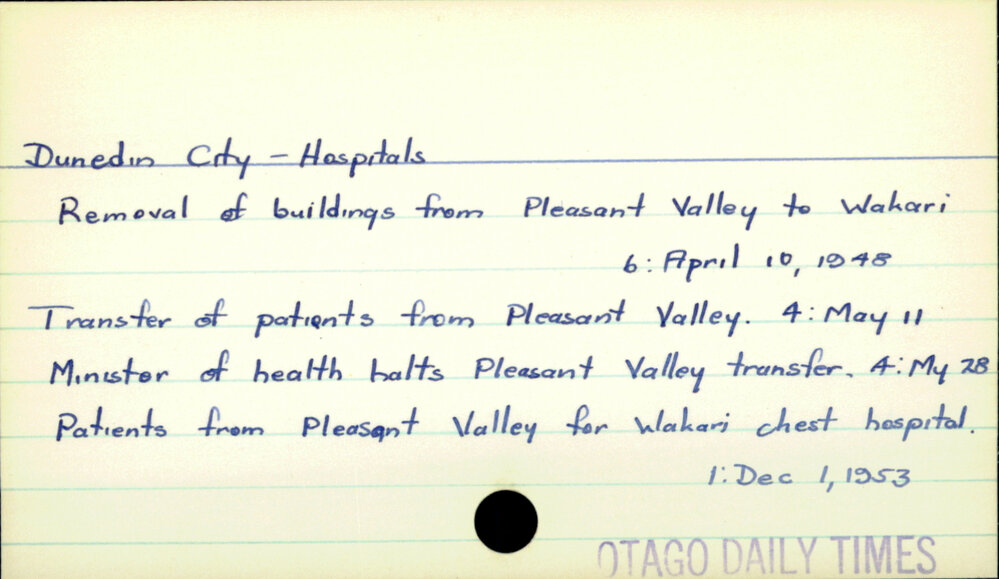 Dunedin City - Hospitals
Removal of buildings from Pleasant Valley to Wakari
6: April 10, 1948
Transfer of patients from Pleasant Valley. 4: May 11
Minister of health halts Pleasant Valley transfer. 4: My 28
Patients from Pleasant Valley for Wakari chest hospital.
1: Dec 1, 1953
OTAGO DAILY TIMES